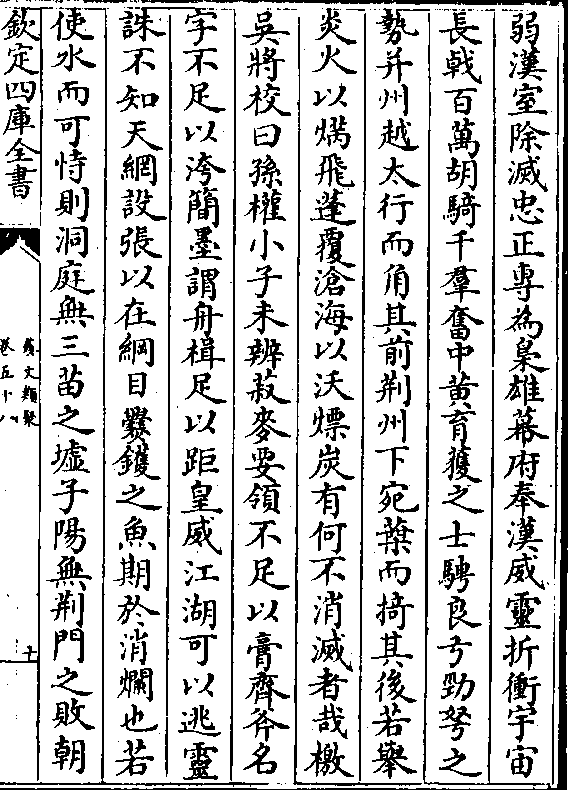 弱漢室除滅忠正專為梟雄幕府奉漢威靈折衝宇宙
長戟百萬胡騎千羣奮中黃育獲之士騁良弓勁弩之
勢并州越太行而角其前荆州下宛葉而掎其後若舉
炎火以焫飛蓬覆滄海以沃熛炭有何不消滅者哉檄
吳將校曰孫權小子未辨菽麥要領不足以膏齊斧名
字不足以洿簡墨謂舟楫足以距皇威江湖可以逃靈
誅不知天網設張以在綱目爨鑊之魚期於消爛也若
使水而可恃則洞庭無三苗之墟子陽無荆門之敗朝
欽定四庫全書
藝文類聚
卷五十八
十